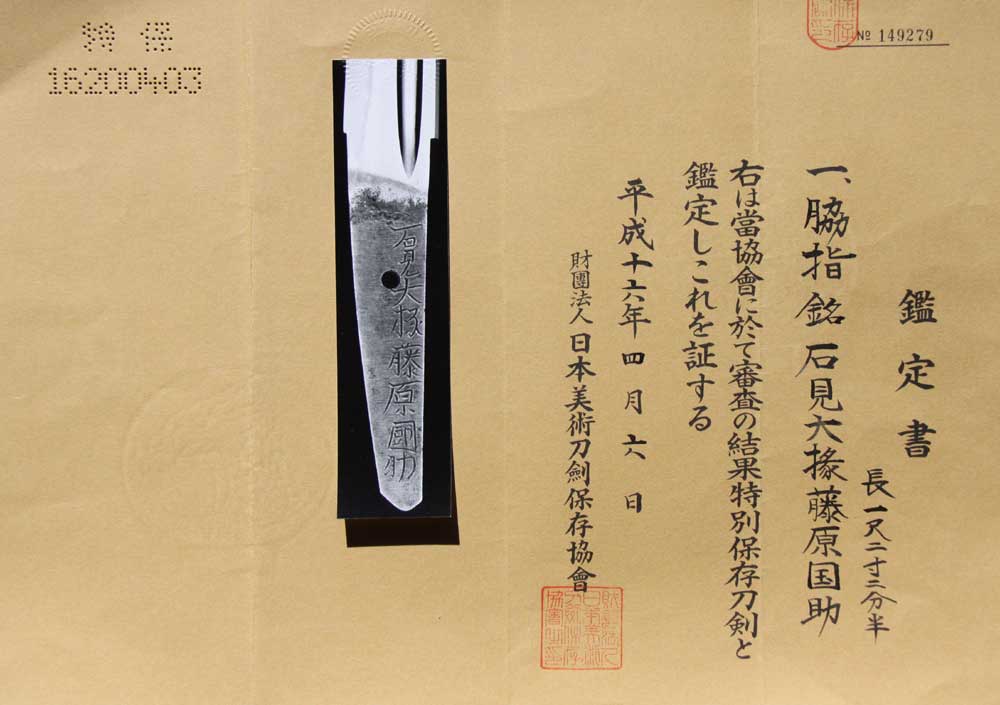 特保
16200403
№ 149279
鑑定書
一、脇指 銘 石見大掾藤原国助
長一尺二寸二分半
右は當協會に於て審査の結果特別保存刀剣と
鑑定しこれを証する
平成十六年四月六日
財團法人日本美術刀劍保存協會
石見大掾藤原國助